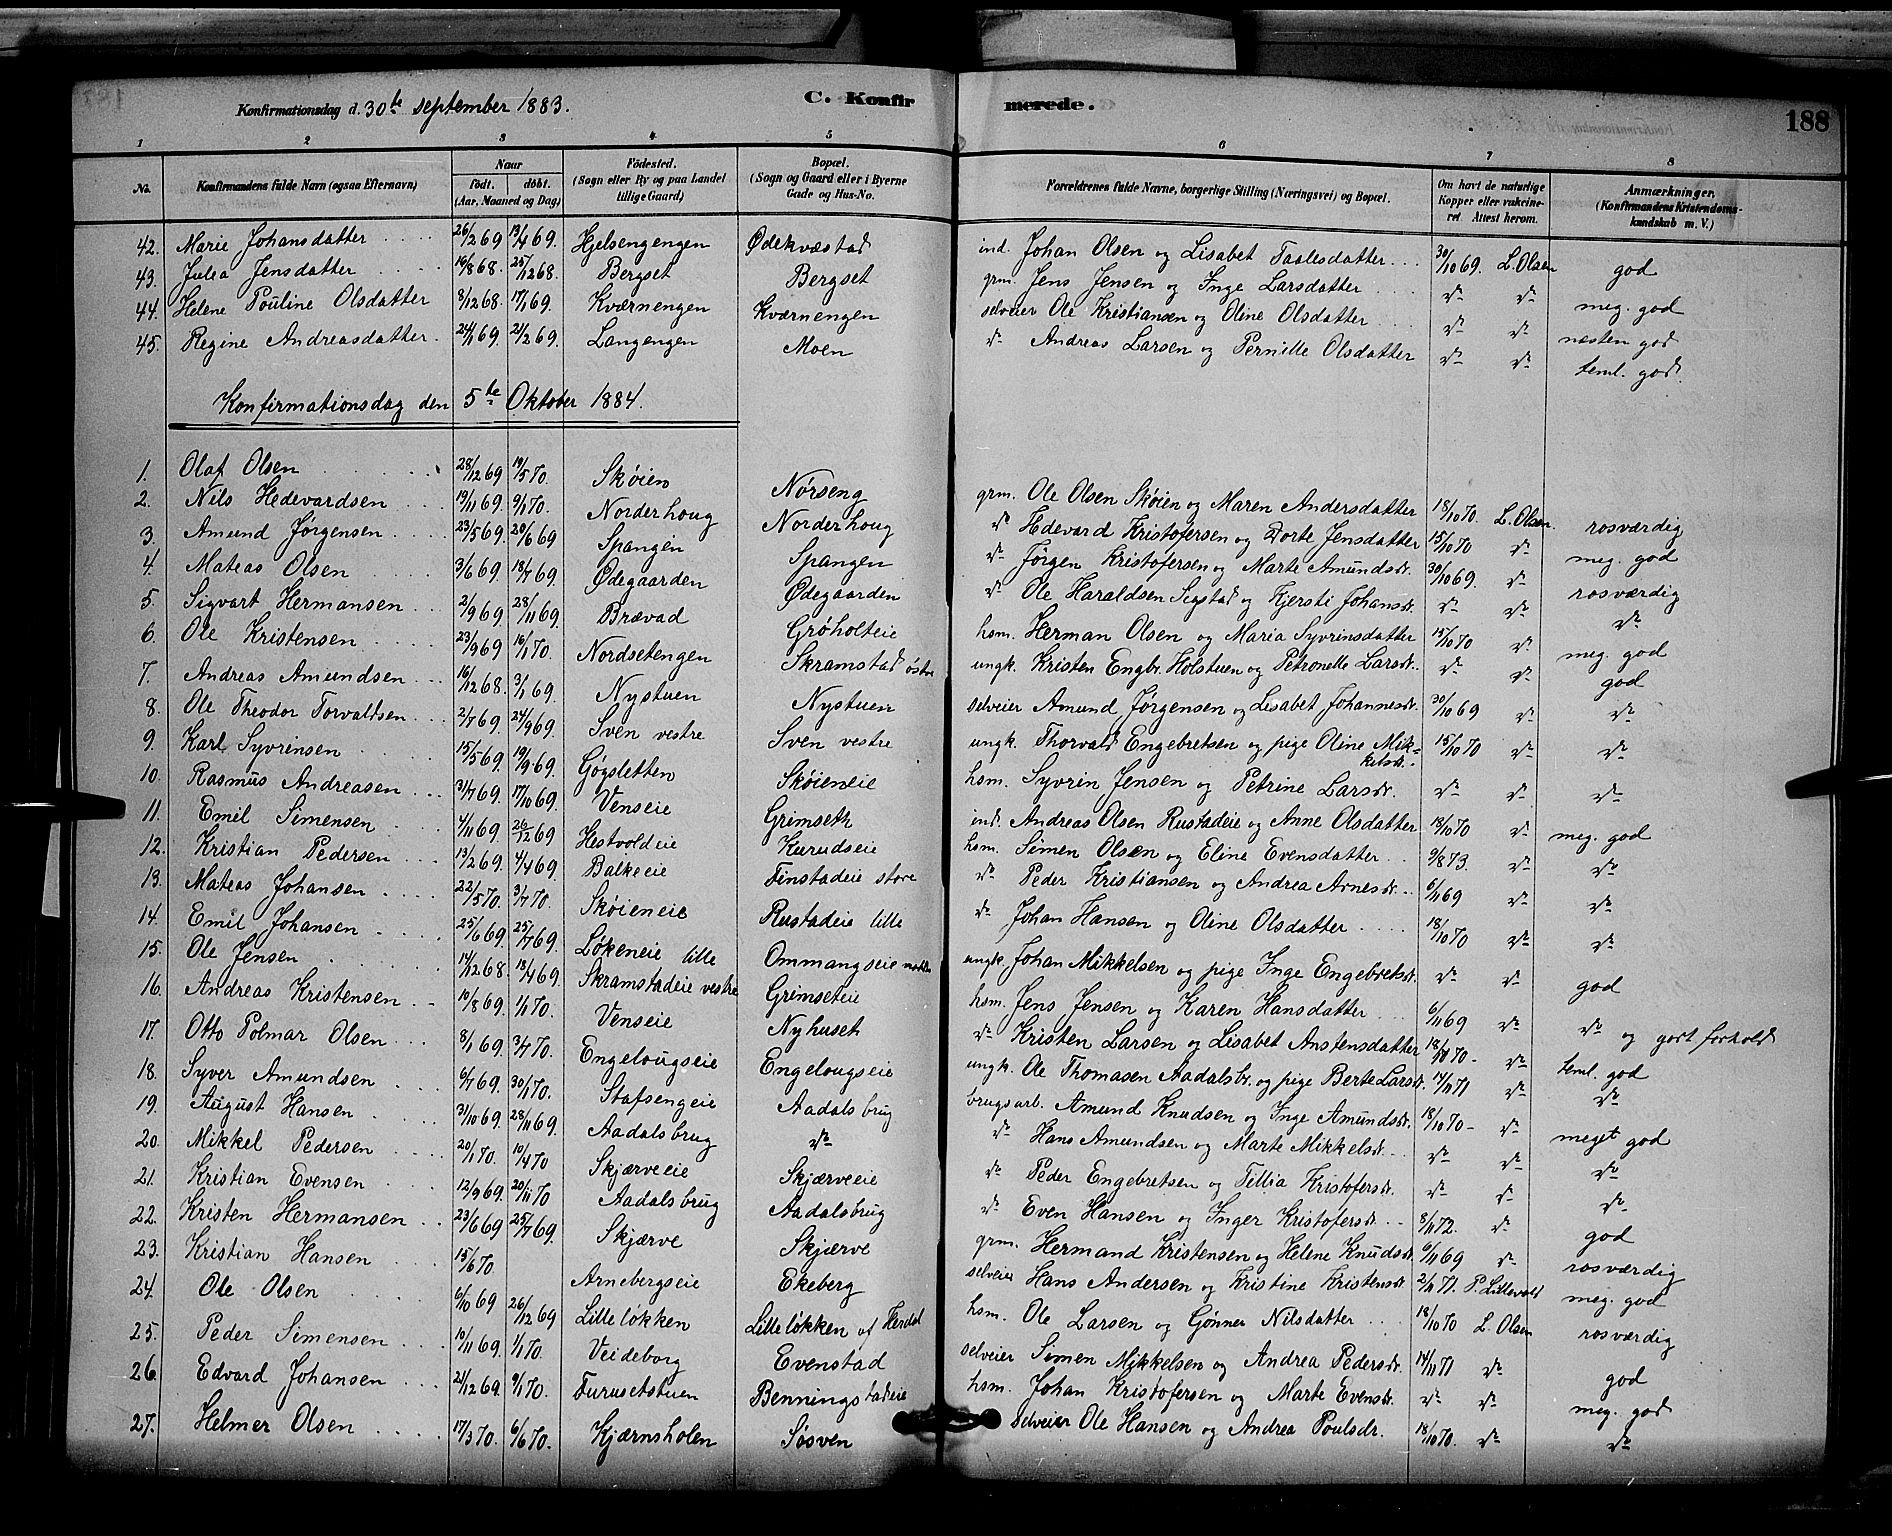 Konfirmationsdag d. 30te september 1883. C. Konfirmerede. 188
1 2 3 4 5 6 7 8
No. Konfirmandens fulde Navn (ogsaa Efternavn) Naar födt. döbt. (Aar, Maaned og Dag) Födested. (Sogn eller By og paa Landet tillige Gaard) Bopæl. (Sogn og Gaard eller i Byerne Gade og Hus-No. Forældrenes fulde Navne, borgerlige Stilling (Næringsvei) og Bopæl. Om havt de naturlige Kopper eller vakcineret. Attest herom. Anmærkninger, (Konfirmandens Kristendomskundskab m. V.)
42. Marie Johansdatter 26/2 69 19/4 69. Hjelsengengen Ødekvæstad ind. Johan Olsen og Lisabet Paalsdatter 30/10 69. L. Olsen god
43. Julea Jensdatter 19/8 68. 25/12 68. Bergset Bergset grm. Jens Jensen og Inge Larsdatter do do meg. god
44. Helene Pouline Olsdatter 8/12 68. 17/1 69. Kværnengen Kværnengen selveier Ole Kristiansen og Oline Olsdatter do do næsten god
45. Regine Andreasdatter. 24/1 69. 21/2 69. Langengen Moen do Andreas Larsen og Pernille Olsdatter do do teml. god.
Konfirmationsdag den 5te Oktober 1884.
1. Olaf Olsen 28/12 69 19/5 70. Skøien Nørseng grm. Ole Olsen Skøien og Maren Andersdatter 18/10 70. L. Olsen. rosværdig
2. Nils Hedevardsen 19/11 69. 9/1 70. Norderhoug Norderhoug do Hedevard Kristofersen og Dorte Jensdatter 15/10 70 do meg. god
3. Amund Jørgensen 23/5 69. 20/6 69 Spangen Spangen do Jørgen Kristofersen og Marte Amundsdr. 30/10 69. do rosværdig
4. Mateas Olsen 3/6 69. 18/7 69. Ødegaarden Ødegaarden do Ole Haraldsen Segstad og Kjersti Johansdr. do do do
5. Sigvart Hermansen 2/9 69. 28/11 69. Brævad Grøholteie hsm. Herman Olsen og Maria Syvrinsdatter 15/10 70 do meg. god
6. Ole Kristensen 23/9 69 16/1 70. Nordsetengen Skramstad østre ungk. Kristen Engbr. Holstuen og Petronelle Larsdr. do do god
7. Andreas Amundsen 16/12 68. 3/1 69. Nystuen Nystuen selveier Amund Jørgensen og Lisabet Johannesdr. 30/10 69 do do
8. Ole Theodor Torvaldsen 2/7 69. 24/9 69. Sven vestre Sven vestre ungk. Thorvald Engebretsen og pige Oline Mikkelsdr. 15/10 70 do do
9. Karl Syvrinsen 15/5 69. 19/9 69. Gjøgsletten Skøieneie hsm. Syvrin Jensen og Petrine Larsdr. do do do
10. Rasmus Andreasen 31/7 69. 17/10 69. Venseie Grimseth ind. Andreas Olsen Rustadeie og Anne Olsdatter 18/10 70 do meg. god
11. Emil Simensen 4/11 69. 26/12 69 Hestvoldeie Kurudseie hsm. Simen Olsen og Eline Evensdatter 9/8 73. do do
12. Kristian Pedersen 13/2 69. 4/4 69. Balkeeie Finstadeie store do Peder Kristiansen og Andrea Arnesdr. 6/11 69 do do
13. Mateas Johansen 22/5 70. 3/7 70. Skøieneie Rustadeie lille do Johan Hansen og Oline Olsdatter 18/10 70 do do
14. Emil Johansen 25/6 69. 25/7 69. Løkeneie lille Ommangseie ungk. Johan Mikkelsen og pige Inge Engebretsdr. do do god
15. Ole Jensen 14/12 68. 18/4 69. Skramstadeie vestre Grimseteie hsm. Jens Jensen og Karen Hansdatter 6/11 69 do do og godt forhold
16. Andreas Kristensen 19/8 69. 1/1 70. Venseie Nyhuset do Kristen Larsen og Lisabet Anstensdatter 18/10 70 do teml. god
17. Otto Polmar Olsen 8/1 69. 3/7 70. Engelougseie Engelougseie ungk. Ole Thomasen Aadalsbr. og pige Berte Larsdr. 14/11 71 do do
18. Syver Amundsen 6/7 69. 30/1 70. Stafsengeie Aadalsbrug brugsarb. Amund Knudsen og Inge Amundsdr. 18/10 70 do meget god
19. August Hansen 31/10 69. 28/11 69. Aadalsbrug do do Hans Amundsen og Marte Mikkelsdr. do do do
20. Mikkel Pedersen 20/1 70. 10/4 70 Skjærveeie Skjærveeie do Peder Engebretsen og Tillia Kristofersdr. do do do
21. Kristian Evensen 12/9 69. 20/11 70 Aadalsbrug Aadalsbrug do Even Hansen og Inger Kristofersdr. 8/11 72. do god
22. Kristen Hermansen 23/6 69 25/7 69. Skjærve Skjærve grm. Hermand Kristensen og Helene Knudsdr. 6/11 69 do rosværdig
23. Kristian Hansen 15/6 70. Arnebergseie Ekeberg selveier Hans Andersen og Kristine Kristensdr. 2/11 71. P. Lillevold meg. god
24. Ole Olsen 6/10 69 26/12 69 Lilleløkken Lilleløkken af Herdal hsm. Ole Larsen og Gønner Nilsdatter 18/10 70 L. Olsen rosværdig
25. Peder Simensen 10/11 69. 1/1 70. Veideborg Evenstad selveier Simen Mikkelsen og Andrea Pedersdr. 14/11 71 do god
26. Edvard Johansen 21/12 69. 9/1 70. Furusetstuen Benningstadeie hsm. Johan Kristofersen og Marte Evensdr. do do meg. god
27. Helmer Olsen 17/3 70. 6/6 70. Kjærnsholen Søsven selveier Ole Hansen og Andrea Poulsdr. 18/10 70. do do